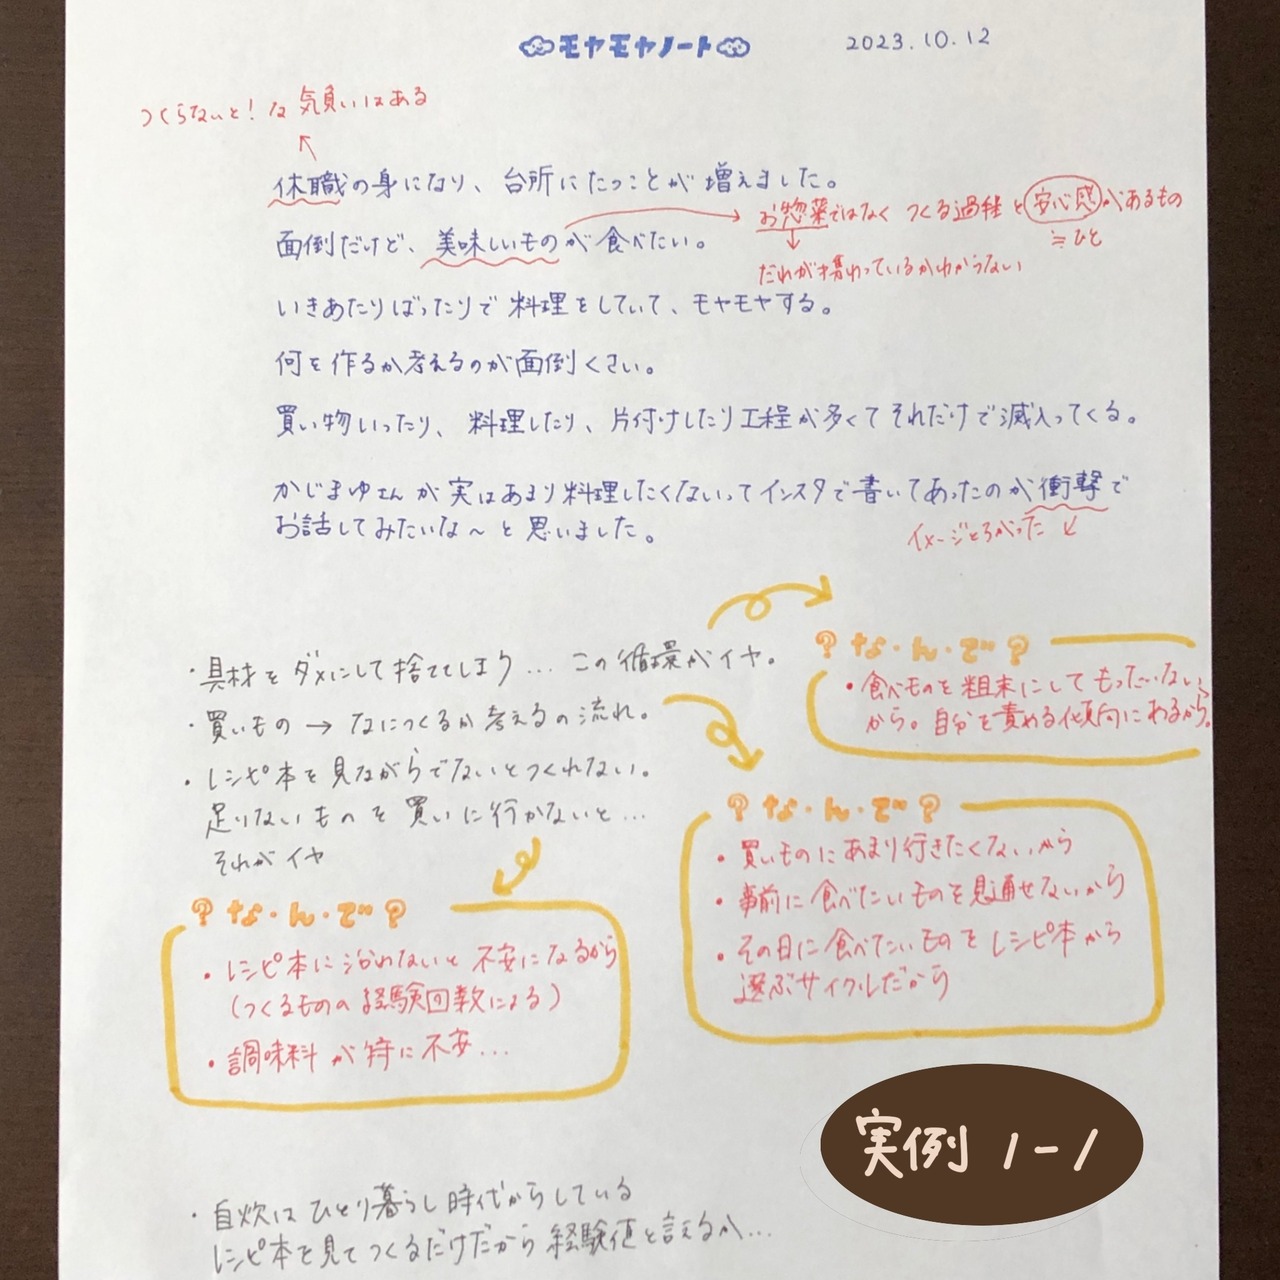 モヤモヤノート
2023.10.12
つくらないと！な気負いはある
休職の身になり、台所にたつことが増えました。
お惣菜ではなく つくる過程と安心感があるもの
≒ひと
面倒だけど、美味しいものが食べたい。
だれが携わっているかわからない
いきあたりばったりで料理をしていて、モヤモヤする。
何を作るか考えるのが面倒くさい。
買い物いったり、料理したり、片付けしたり工程が多くてそれだけで滅入ってくる。
かじまゆさんが実はあまり料理したくないってインスタで書いてあったのが衝撃で
お話してみたいな～と思いました。
イメージとちがった
・具材をダメにして捨ててしまう… この循環がイヤ。
?な・ん・で?
・食べものを粗末にしてもったいない
から。自分を責める傾向にあるから。
・買いもの→なにつくるか考えるの流れ。
・レシピ本を見ながらでないとつくれない。
足りないものを買いに行かないと…
それがイヤ
?な・ん・で?
・買いものにあまり行きたくないから
・事前に食べたいものを見通せないから
・その日に食べたいものをレシピ本から
選ぶサイクルだから
?な・ん・で?
・レシピ本に沿れないと不安になるから
（つくるものの経験回数による）
・調味料が特に不安…
実例 1-1
・自炊はひとり暮らし時代からしている
レシピ本を見てつくるだけだから経験値と言えるか…